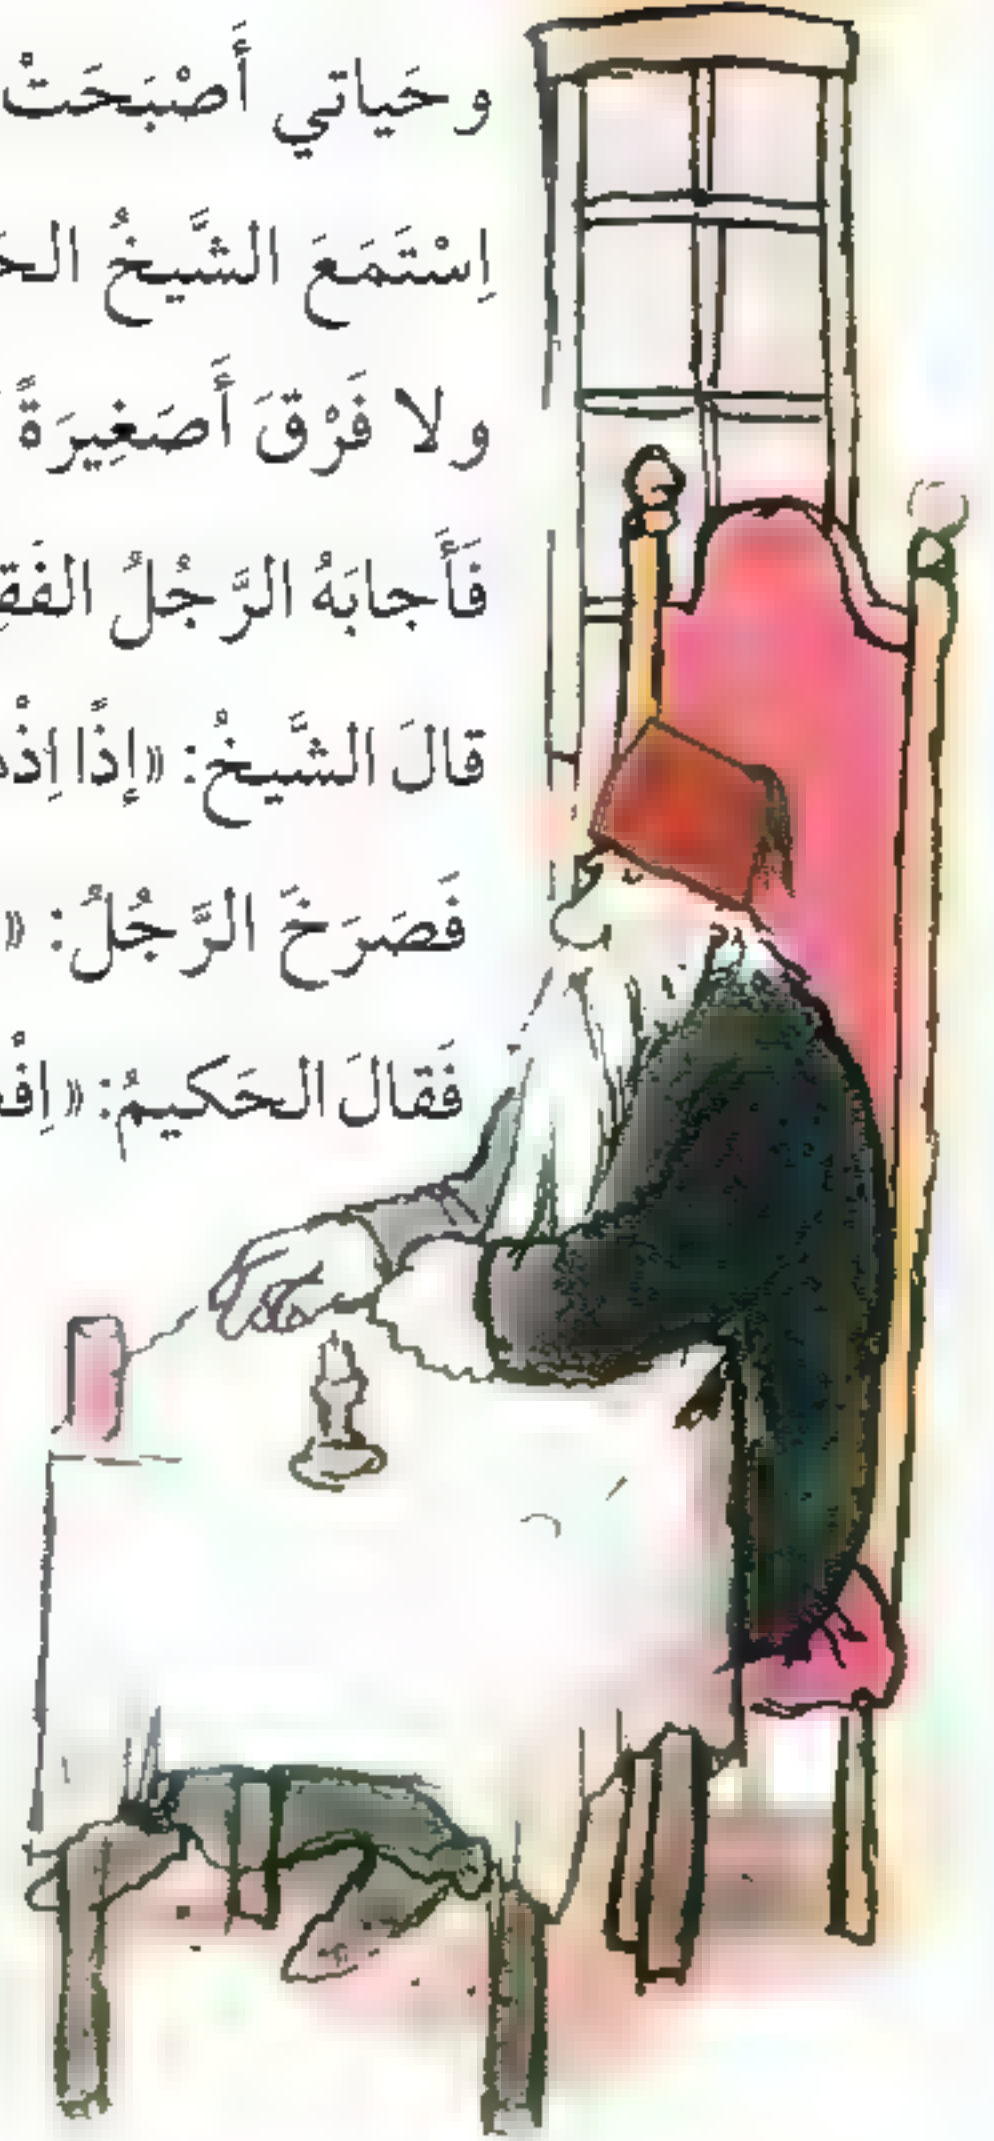 وحَياتي أَصْبَحَتْ
اِسْتَمَعَ الشَّيخُ
ولا فَرْقَ أَصَغِيرَةً
فَأَجابَهُ الرَّجُلُ
قالَ الشَّيخُ: «إِذًا
فَصَرَخَ الرَّجُلُ: «
فَقالَ الحَكيمُ: «